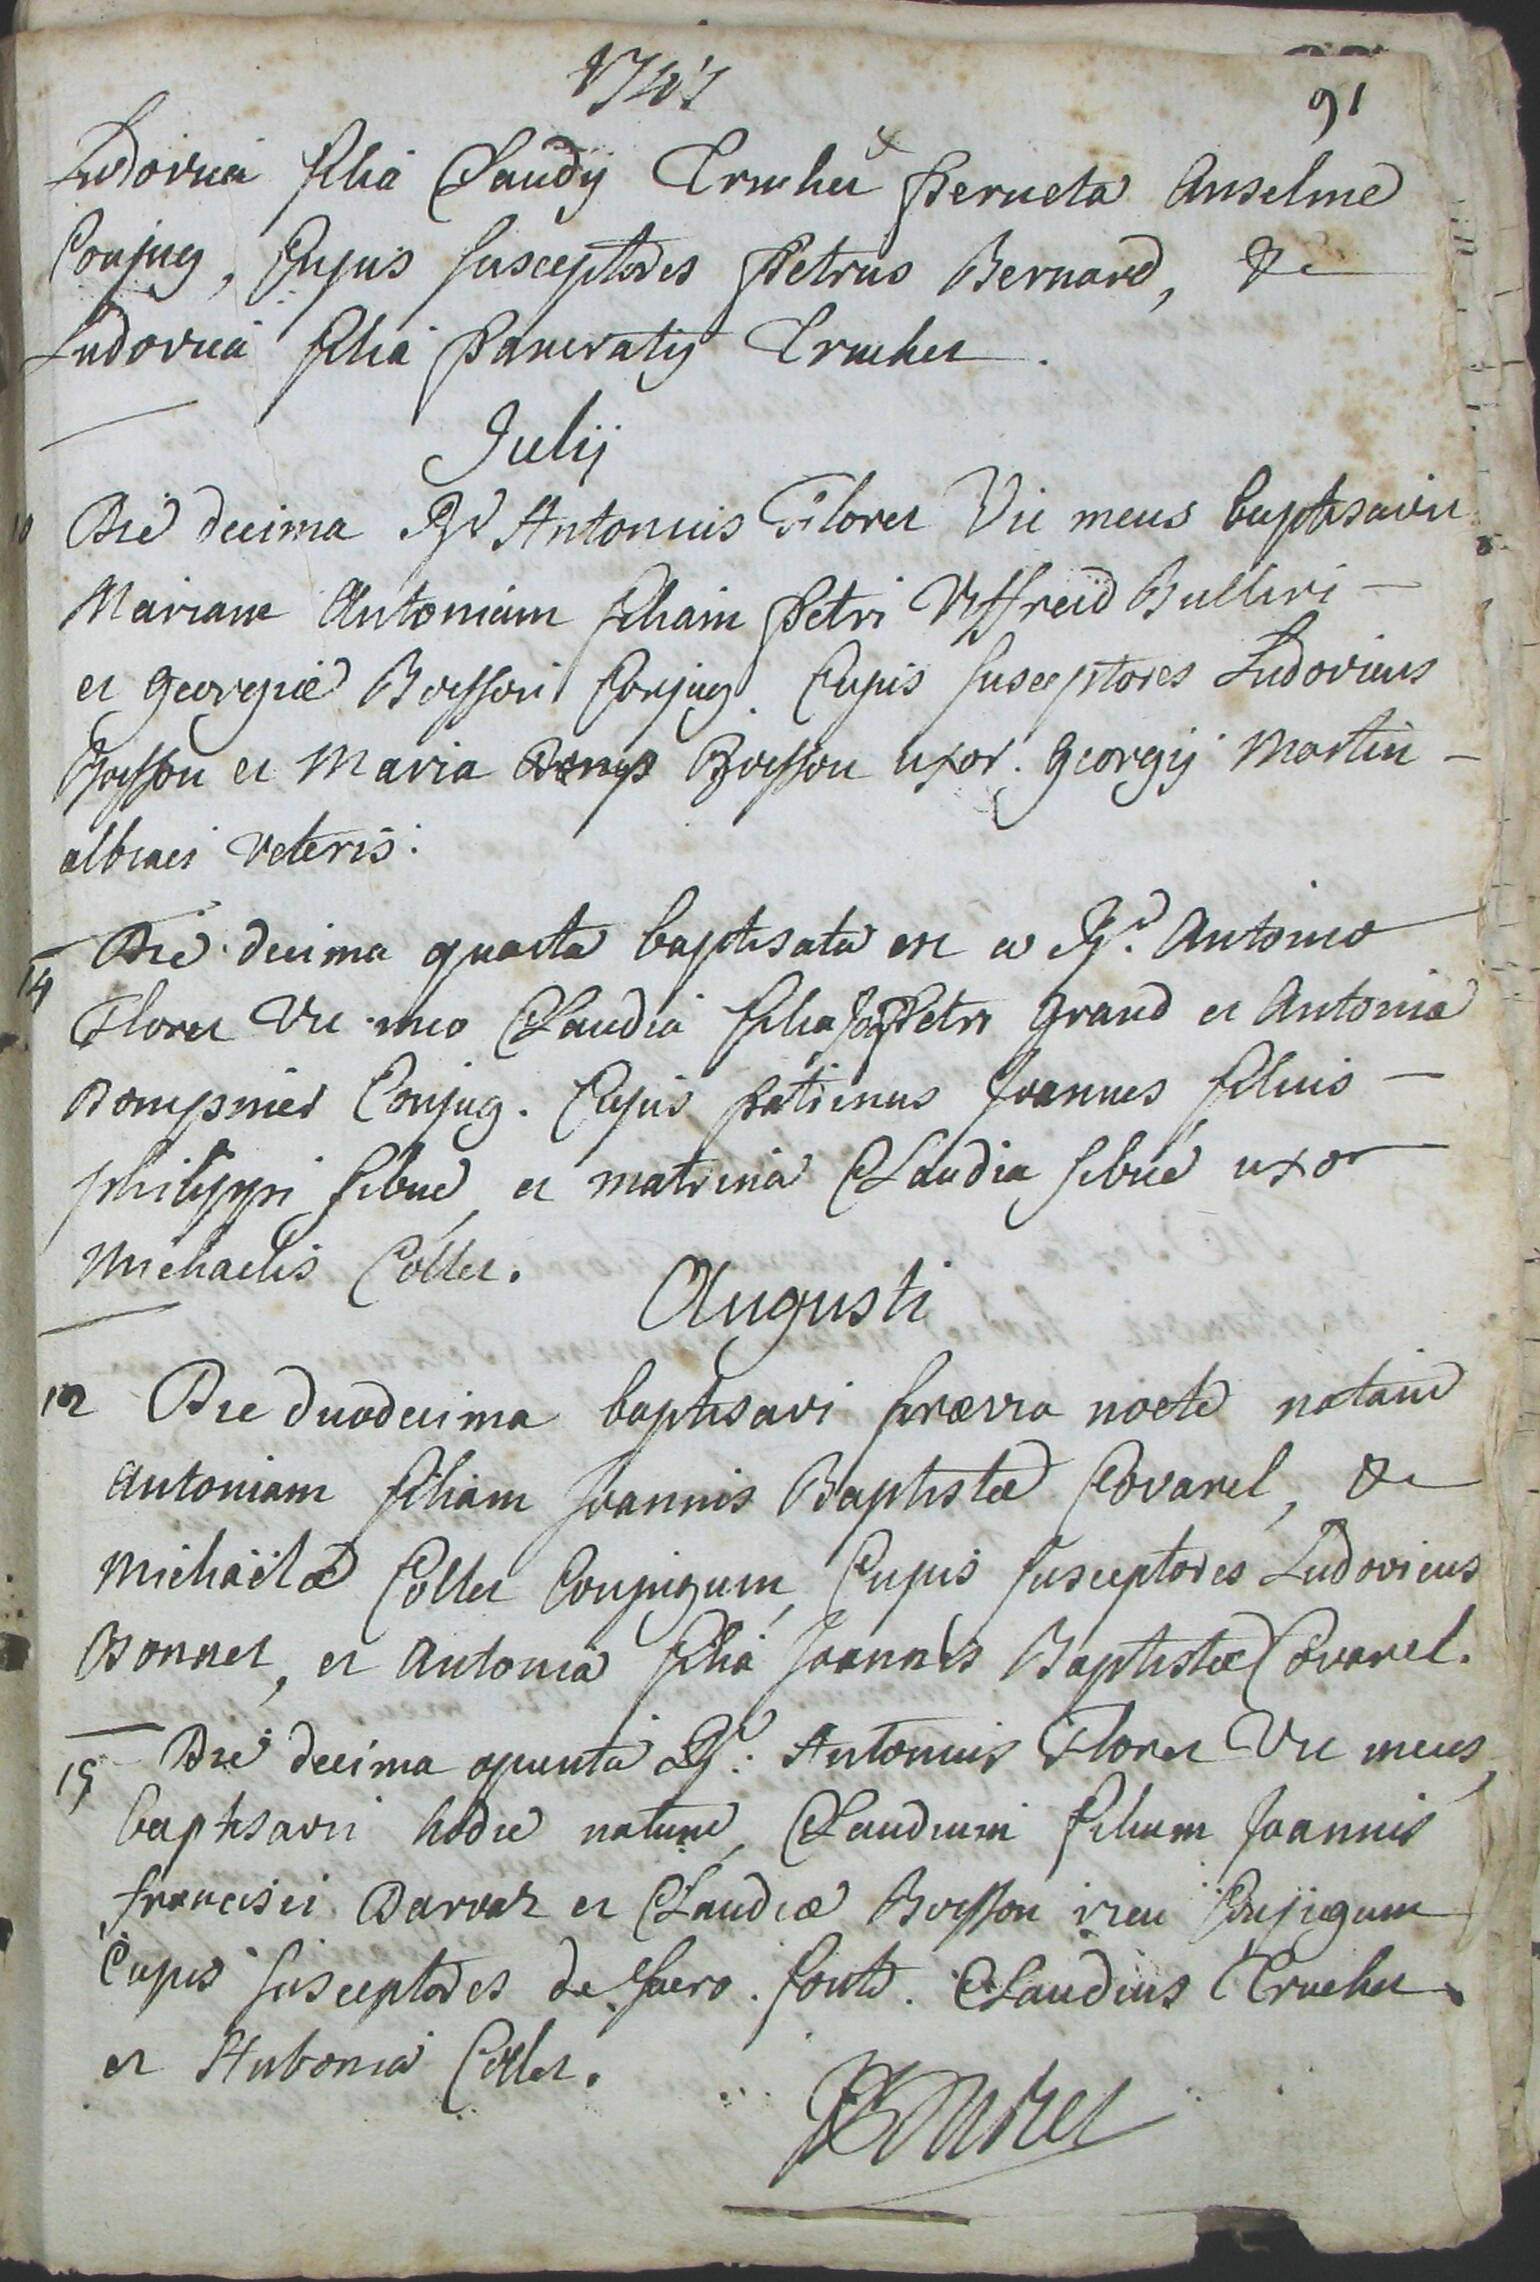 1747
91
Ludovica filia Claudij Truchet & Perneta Anselme
Conjug, Cujus susceptores Petrus Bernard, &
Ludovica filia Pancratij Truchet.
Julij
10 Die decima Rd Antonius Floret Vic meus baptisavit
Mariam Antoniam filiam Petri Viffreid Bulleri
et Georgiæ Boisson Conjug. Cujus susceptores Ludovicus
Boisson et Maria Boisson uxor. Georgij Martin
albiaci veteris.
14 Die decima quarta baptisata est a Rd. Antonio
Floret Vic meo Claudia filia Jo Petri Grand et Antonia
Dompmier Conjug. Cujus patrinus Joannes filius
philippi Sibué, et matrina Claudia Sibué uxor
Michaelis Collet.
Augusti
12 Die duodecima baptisavi nocte natam
Antoniam filiam Joannis Baptistæ Covarel, &
Michaëlæ Collet Conjugum, Cujus susceptores Ludovicus
Bonnet, et Antonia filia Joannis Baptistæ Covarel.
15 Die decima quinta Rd. Antonius Floret Vic meus,
baptisavit hodie natum, Claudium filium Joannis
francisci Darvez et Claudiæ Boisson Conjugum
Cujus susceptores de sacro fonte. Claudius Truchet
et Antonia Collet.